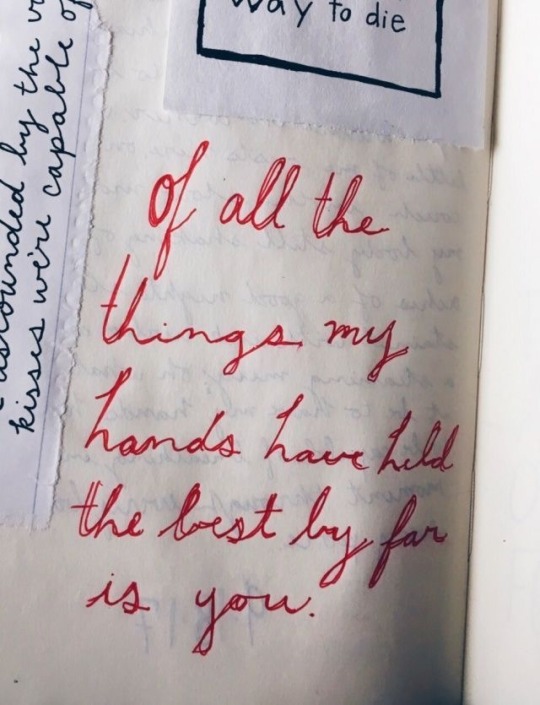 way to die
astounded by the
kisses we're capable of
of all the
things my
hands have held
the best by far
is you.